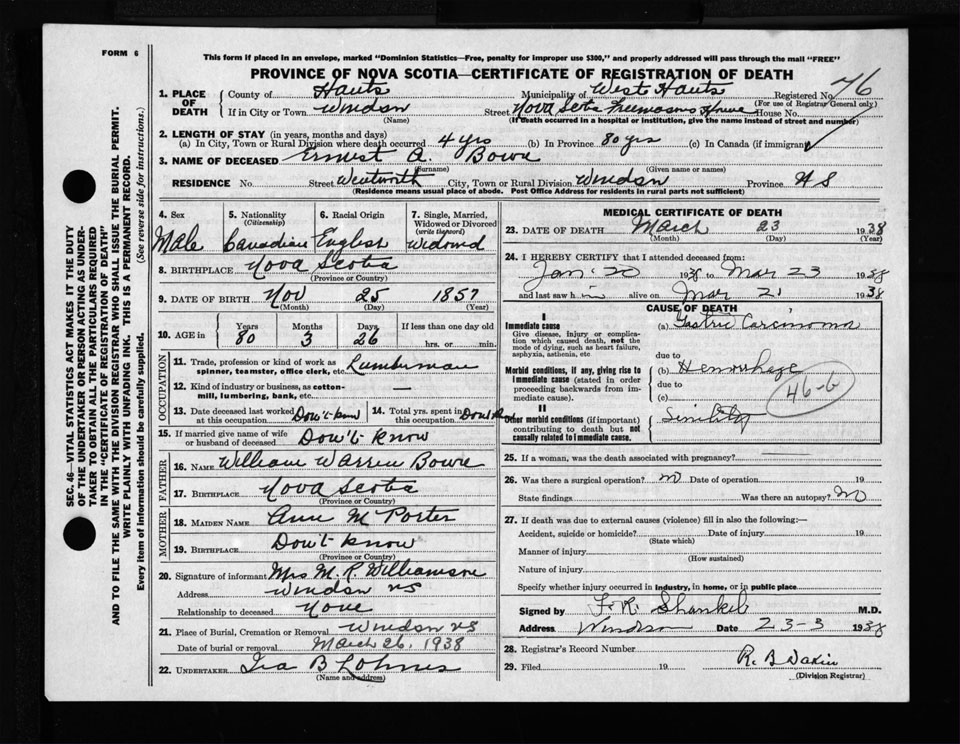 FORM 6
This form if placed in an envelope, marked "Dominion Statistics—Free, penalty for improper use $300," and properly addressed will pass through the mail "FREE"
PROVINCE OF NOVA SCOTIA—CERTIFICATE OF REGISTRATION OF DEATH
SEC. 46—VITAL STATISTICS ACT MAKES IT THE DUTY
OF THE UNDERTAKER OR PERSON ACTING AS UNDER-
TAKER TO OBTAIN ALL THE PARTICULARS REQUIRED
IN THE "CERTIFICATE OF REGISTRATION OF DEATH"
AND TO FILE THE SAME WITH THE DIVISION REGISTRAR WHO SHALL ISSUE THE BURIAL PERMIT.
WRITE PLAINLY WITH UNFADING INK. THIS IS A PERMANENT RECORD.
Every item of information should be carefully supplied. (See reverse side for instructions.)
1. PLACE OF DEATH County of Hants Municipality of West Hants Registered No. 76
(For use of Registrar General only)
If in City or Town Windsor Street Nova Scotia Freemasons Home House No.
(Name) (If death occurred in a hospital or institution, give the name instead of street and number)
2. LENGTH OF STAY (in years, months and days)
(a) In City, Town or Rural Division where death occurred 4 yrs (b) In Province 80 yrs (c) In Canada (if immigrant)
3. NAME OF DECEASED Ernest A. Bowe
(Surname) (Given name or names)
RESIDENCE No. Street Wentworth City, Town or Rural Division Windsor Province N S
(Residence means usual place of abode. Post Office Address for residents in rural parts not sufficient)
4. Sex 5. Nationality (Citizenship) 6. Racial Origin 7. Single, Married, Widowed or Divorced (write the word)
Male Canadian English Widowed
8. BIRTHPLACE Nova Scotia
(Province or Country)
9. DATE OF BIRTH Nov 25 1857
(Month) (Day) (Year)
10. AGE in Years Months Days If less than one day old
80 3 26 hrs. or min.
OCCUPATION
11. Trade, profession or kind of work as spinner, teamster, office clerk, etc. Lumberman
12. Kind of industry or business, as cotton-mill, lumbering, bank, etc. —
13. Date deceased last worked at this occupation Don't know 14. Total yrs. spent in this occupation Don't know
15. If married give name of wife or husband of deceased Don't know
FATHER
16. NAME William Warren Bowe
17. BIRTHPLACE Nova Scotia
(Province or Country)
MOTHER
18. MAIDEN NAME Ann M Porter
19. BIRTHPLACE Don't know
(Province or Country)
20. Signature of informant Mrs M. R. Williamson
Address Windsor NS
Relationship to deceased None
21. Place of Burial, Cremation or Removal Windsor NS
Date of burial or removal March 26, 1938
22. UNDERTAKER Ira B Lohnes
(Name and address)
MEDICAL CERTIFICATE OF DEATH
23. DATE OF DEATH March 23 1938
(Month) (Day) (Year)
24. I HEREBY CERTIFY that I attended deceased from:
Jan 20 1938 to Mar 23 1938
and last saw him alive on Mar 21 1938
CAUSE OF DEATH
I
Immediate cause (a) Gastric Carcinoma
Give disease, injury or complication which caused death, not the mode of dying, such as heart failure, asphyxia, asthenia, etc
due to
Morbid conditions, if any, giving rise to immediate cause (stated in order proceeding backwards from immediate cause). (b) Hemorrhage
due to
(c)
46-b
II
Other morbid conditions (if important) contributing to death but not causally related to immediate cause. Senility
25. If a woman, was the death associated with pregnancy? —
26. Was there a surgical operation? no Date of operation 19
State findings Was there an autopsy? no
27. If death was due to external causes (violence) fill in also the following:—
Accident, suicide or homicide? Date of injury 19
(State which)
Manner of injury
(How sustained)
Nature of injury
Specify whether injury occurred in industry, in home, or in public place
Signed by F. R. Shankel M.D.
Address Windsor Date 23-3 1938
28. Registrar's Record Number
29. Filed 19 R. B Dakin
(Division Registrar)